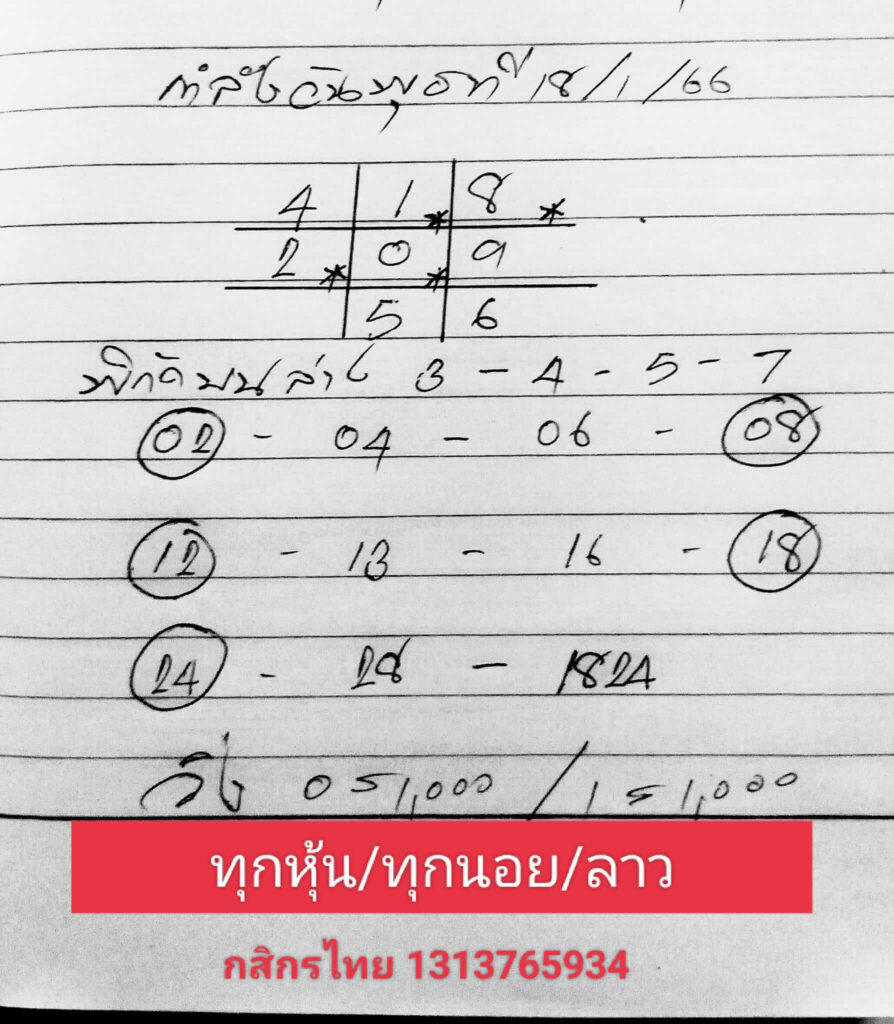 กำลังวันพุธที่ 18/1/66
4 1 * 8 *
2 * 0 * 9
5 6
พิกัดบนล่าง 3 - 4 - 5 - 7
02 - 04 - 06 - 08
12 - 13 - 16 - 18
24 - 28 - 1824
วิ่ง 0 = 1,000 / 1 = 1,000
ทุกหุ้น/ทุกนอย/ลาว
กสิกรไทย 1313765934